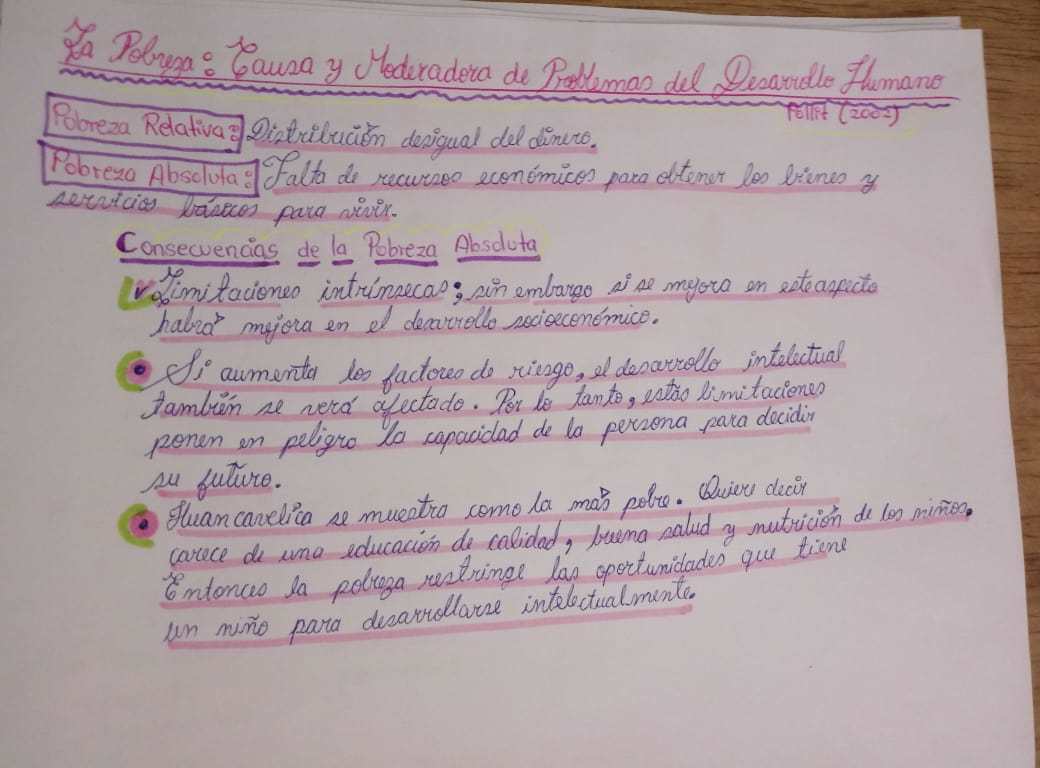 La Pobreza: Causa y Moderadora de Problemas del Desarrollo Humano
Pollit (2002)
Pobreza Relativa: Distribución desigual del dinero.
Pobreza Absoluta: Falta de recursos económicos para obtener los bienes y
servicios básicos para vivir.
Consecuencias de la Pobreza Absoluta
Limitaciones intrínsecas; sin embargo si se mejora en este aspecto
habrá mejora en el desarrollo socioeconómico.
Si aumenta los factores de riesgo, el desarrollo intelectual
también se verá afectado. Por lo tanto, estás limitaciones
ponen en peligro la capacidad de la persona para decidir
su futuro.
Huancavelica se muestra como la más pobre. Quiere decir
carece de una educación de calidad, buena salud y nutrición de los niños.
Entonces la pobreza restringe las oportunidades que tiene
un niño para desarrollarse intelectualmente.